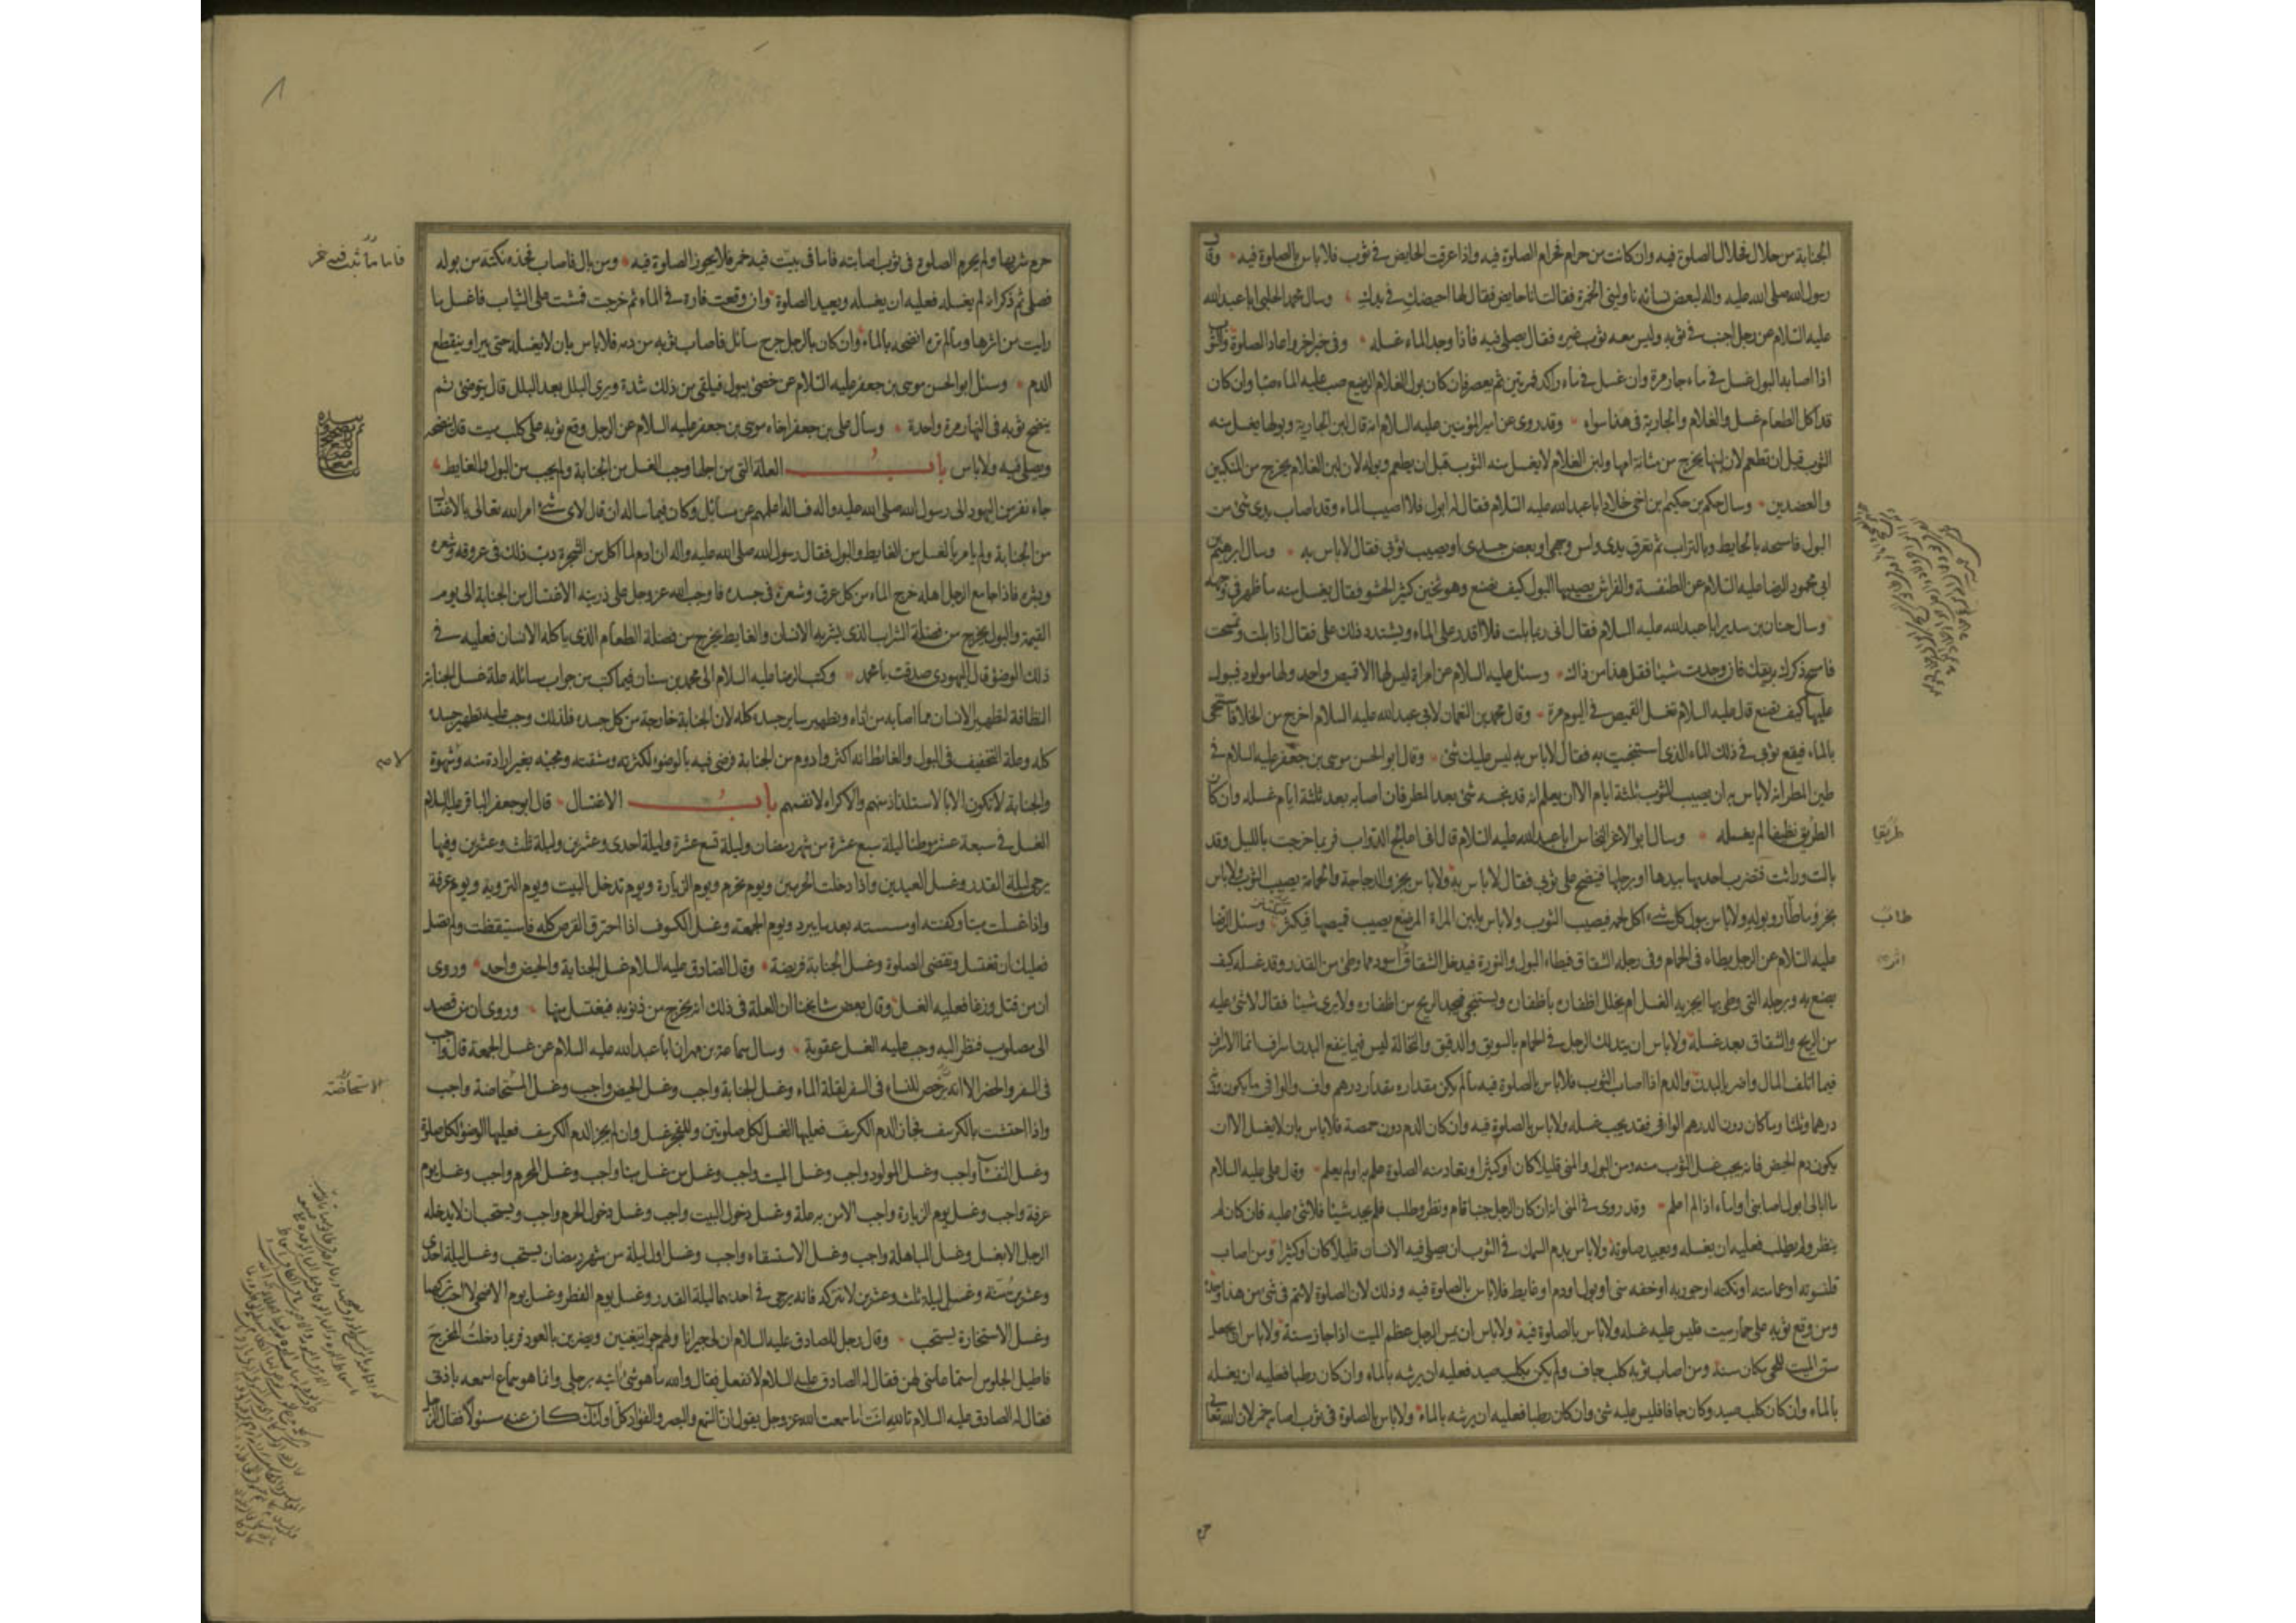 الجنابة من حلال فحلال الصلوة فيه وان كانت من حرام فحرام الصلوة فيه واذا عرقت الحايض في ثوب فلا باس بالصلوة فيه وقال
رسول الله صلى الله عليه واله لبعض نسائه ناوليني الخمرة فقالت انا حايض فقال لها احيضك في يدك وسال محمد الحلبي ابا عبد الله
عليه السلام عن رجل اجنب في ثوبه وليس معه ثوب غيره فقال يصلي فيه فاذا وجد الماء غسله وفي خبر اخر واعاد الصلوة والثوب
اذا اصابه البول غسل في ماء جار مرة وان غسل في ماء راكد فمرتين ثم يعصر فان كان بول الغلام الرضيع صب عليه الماء صبا وان كان
قد اكل الطعام غسل والغلام والجارية في هذا سواء وقد روى عن امير المؤمنين عليه السلام انه قال لبن الجارية وبولها يغسل منه
الثوب قبل ان تطعم لان لبنها يخرج من مثانة امها ولبن الغلام لا يغسل منه الثوب قبل ان يطعم وبوله لان لبن الغلام يخرج من المنكبين
والعضدين وسال حكم بن حكيم بن اخي خلاد ابا عبد الله عليه السلام فقال له ابول فلا اصيب الماء وقد اصاب يدي شئ من
البول فامسحه بالحايط وبالتراب ثم تعرق يدي وامس وجهي او بعض جسدي او يصيب ثوبي فقال لا باس به وسال ابرهيم بن
ابي محمود الرضا عليه السلام عن الطنفسة والفراش يصيبهما البول كيف يصنع وهو ثخين كثير الحشو فقال يغسل منه ما ظهر في وجهه
وسال حنان بن سدير ابا عبد الله عليه السلام فقال اني ربما بلت فلا اقدر على الماء ويشتد ذلك علي فقال اذا بلت وتمسحت
فامسح ذكرك بريقك فان وجدت شيئا فقل هذا من ذاك وسئل عليه السلام عن امراة ليس لها الا قميص واحد ولها مولود فيبول
عليها كيف تصنع قال عليه السلام تغسل القميص في اليوم مرة وقال محمد بن النعمان لابي عبد الله عليه السلام اخرج من الخلا فاستنجي
بالماء فيقع ثوبي في ذلك الماء الذي استنجيت به فقال لا باس به ليس عليك شئ وقال ابو الحسن موسى بن جعفر عليه السلام في
طين المطر انه لا باس به ان يصيب الثوب ثلثة ايام الا ان يعلم انه قد نجسه شئ بعد المطر فان اصابه بعد ثلثة ايام غسله وان كان
الطريق نظيفا لم يغسله وسال ابو الاعز النخاس ابا عبد الله عليه السلام قال اني اعالج الدواب فربما خرجت بالليل وقد
بالت وراثت فتضرب احديها بيدها او برجلها فينضح على ثوبي فقال لا باس به ولا باس بخرء الدجاجة والحمامة يصيب الثوب ولا باس
بخرء ما طار وبوله ولا باس ببول كل شئ اكل لحمه فيصيب الثوب ولا باس بلبن المراة المرضع يصيب قميصها فيكثر وسئل الرضا
عليه السلام عن الرجل يطاء في الحمام وفي رجله الشقاق فيطاء البول والنورة فيدخل الشقاق اسود مما وطئ من القذر وقد غسله كيف
يصنع به وبرجله التي وطئ بها ايجزيه الغسل ام يخلل اظفاره باظفاره ويستنجي فيجد الريح من اظفاره ولا يرى شيئا فقال لا شئ عليه
من الريح والشقاق بعد غسله ولا باس ان يتدلك الرجل في الحمام بالسويق والدقيق والنخالة ليس فيما ينفع البدن اسراف انما الاسراف
فيما اتلف المال واضر بالبدن والدم اذا اصاب الثوب فلا باس بالصلوة فيه ما لم يكن مقداره مقدار درهم واف والوافي ما يكون وزنه
درهما وثلثا وما كان دون الدرهم الوافي فقد يجب غسله ولا باس بالصلوة فيه وان كان الدم دون حمصة فلا باس بان لا يغسل الا ان
يكون دم الحيض فانه يجب غسل الثوب منه ومن البول والمني قليلا كان او كثيرا وتعاد منه الصلوة علم به او لم يعلم وقال علي عليه السلام
ما ابالي ابول اصابني او ماء اذا لم اعلم وقد روى في المني انه ان كان الرجل جنبا قام ونظر وطلب فلم يجد شيئا فلا شئ عليه فان كان لم
ينظر ولم يطلب فعليه ان يغسله ويعيد صلوته ولا باس بدم السمك في الثوب ان يصلي فيه الانسان قليلا كان او كثيرا ومن اصاب
قلنسوته او عمامته او تكته او جوربه او خفه مني او بول او دم او غايط فلا باس بالصلوة فيه وذلك لان الصلوة لا تتم في شئ من هذا وحده
ومن وقع ثوبه على حمار ميت فليس عليه غسله ولا باس بالصلوة فيه ولا باس ان يمس الرجل عظم الميت اذا جاز سنة ولا باس ان يجعل
سن الميت للحي مكان سنه ومن اصاب ثوبه كلب جاف ولم يكن بكلب صيد فعليه ان يرشه بالماء وان كان رطبا فعليه ان يغسله
بالماء وان كان كلب صيد وكان جافا فليس عليه شئ وان كان رطبا فعليه ان يرشه بالماء ولا باس بالصلوة في ثوب اصابه خمر لان الله تعالى
طريقا
حرم
حرم شربها ولم يحرم الصلوة في ثوب اصابته فاما في بيت فيه خمر فلا يجوز الصلوة فيه ومن بال فاصاب فخذه نكتة من بوله
فصلى ثم ذكر انه لم يغسله فعليه ان يغسله ويعيد الصلوة وان وقعت فارة في الماء ثم خرجت فمشت على الثياب فاغسل ما
رايت من اثرها وما لم تره انضحه بالماء وان كان بالرجل جرح سائل فاصاب ثوبه من دمه فلا باس بان لا يغسله حتى يبرا او ينقطع
الدم وسئل ابو الحسن موسى بن جعفر عليه السلام عن خصي يبول فيلقى من ذلك شدة ويرى البلل بعد البلل قال يتوضئ ثم
ينضح ثوبه في النهار مرة واحدة وسال علي بن جعفر اخاه موسى بن جعفر عليه السلام عن الرجل وقع ثوبه على كلب ميت قال ينضحه
ويصلي فيه ولا باس باب العلة التي من اجلها وجب الغسل من الجنابة ولم يجب من البول والغايط
جاء نفر من اليهود الى رسول الله صلى الله عليه واله فساله اعلمهم عن مسائل وكان فيما ساله ان قال لاي شئ امر الله تعالى بالاغتسال
من الجنابة ولم يامر بالغسل من الغايط والبول فقال رسول الله صلى الله عليه واله ان ادم لما اكل من الشجرة دب ذلك في عروقه وشعره
وبشره فاذا جامع الرجل اهله خرج الماء من كل عرق وشعرة في جسده فاوجب الله عز وجل على ذريته الاغتسال من الجنابة الى يوم
القيمة والبول يخرج من فضلة الشراب الذي يشربه الانسان والغايط يخرج من فضلة الطعام الذي ياكله الانسان فعليه في
ذلك الوضوء قال اليهودي صدقت يا محمد وكتب الرضا عليه السلام الى محمد بن سنان فيما كتب من جواب مسائله علة غسل الجنابة
النظافة لتطهير الانسان مما اصابه من اذاه وتطهير ساير جسده كله لان الجنابة خارجة من كل جسده فلذلك وجب عليه تطهير جسده
كله وعلة التخفيف في البول والغائط انه اكثر وادوم من الجنابة فرضي فيه بالوضوء لكثرته ومشقته ومجيئه بغير ارادة منه وشهوة
والجنابة لا تكون الا بالاستلذاذ منهم والاكراه لانفسهم باب الاغتسال قال ابو جعفر الباقر عليه السلام
الغسل في سبعة عشر موطنا ليلة سبع عشرة من شهر رمضان وليلة تسع عشرة وليلة احدى وعشرين وليلة ثلث وعشرين وفيها
يرجى ليلة القدر وغسل العيدين واذا دخلت الحرمين ويوم تحرم ويوم الزيارة ويوم تدخل البيت ويوم التروية ويوم عرفة
واذا غسلت ميتا وكفنته او مسسته بعد ما يبرد ويوم الجمعة وغسل الكسوف اذا احترق القرص كله فاستيقظت ولم تصل
فعليك ان تغتسل وتقضي الصلوة وغسل الجنابة فريضة وقال الصادق عليه السلام غسل الجنابة والحيض واحد وروى
ان من قتل وزغا فعليه الغسل وقال بعض مشايخنا ان العلة في ذلك انه يخرج من ذنوبه فيغتسل منها وروى ان من قصد
الى مصلوب فنظر اليه وجب عليه الغسل عقوبة وسال سماعة بن مهران ابا عبد الله عليه السلام عن غسل الجمعة قال واجب
في السفر والحضر الا انه رخص للنساء في السفر لقلة الماء وغسل الجنابة واجب وغسل الحيض واجب وغسل المستحاضة واجب
واذا احتشت بالكرسف فجاز الدم الكرسف فعليها الغسل لكل صلوتين وللفجر غسل وان لم يجز الدم الكرسف فعليها الوضوء لكل صلوة
وغسل النفساء واجب وغسل المولود واجب وغسل الميت واجب وغسل من غسل ميتا واجب وغسل المحرم واجب وغسل يوم
عرفة واجب وغسل يوم الزيارة واجب الا من به علة وغسل دخول البيت واجب وغسل دخول الحرم واجب ويستحب ان لا يدخله
الرجل الا بغسل وغسل المباهلة واجب وغسل الاستسقاء واجب وغسل اول ليلة من شهر رمضان يستحب وغسل ليلة احدى
وعشرين سنة وغسل ليلة ثلث وعشرين لا تتركه فانه يرجى في احديهما ليلة القدر وغسل يوم الفطر وغسل يوم الاضحى لا احب تركها
وغسل الاستخارة يستحب وقال رجل للصادق عليه السلام ان لي جيرانا ولهم جوار يتغنين ويضربن بالعود فربما دخلت المخرج
فاطيل الجلوس استماعا مني لهن فقال له الصادق عليه السلام لا تفعل فقال والله ما هو شئ اتيه برجلي وانما هو سماع اسمعه باذني
فقال له الصادق عليه السلام تالله انت اما سمعت الله عز وجل يقول ان السمع والبصر والفؤاد كل اولئك كان عنه مسئولا فقال الرجل